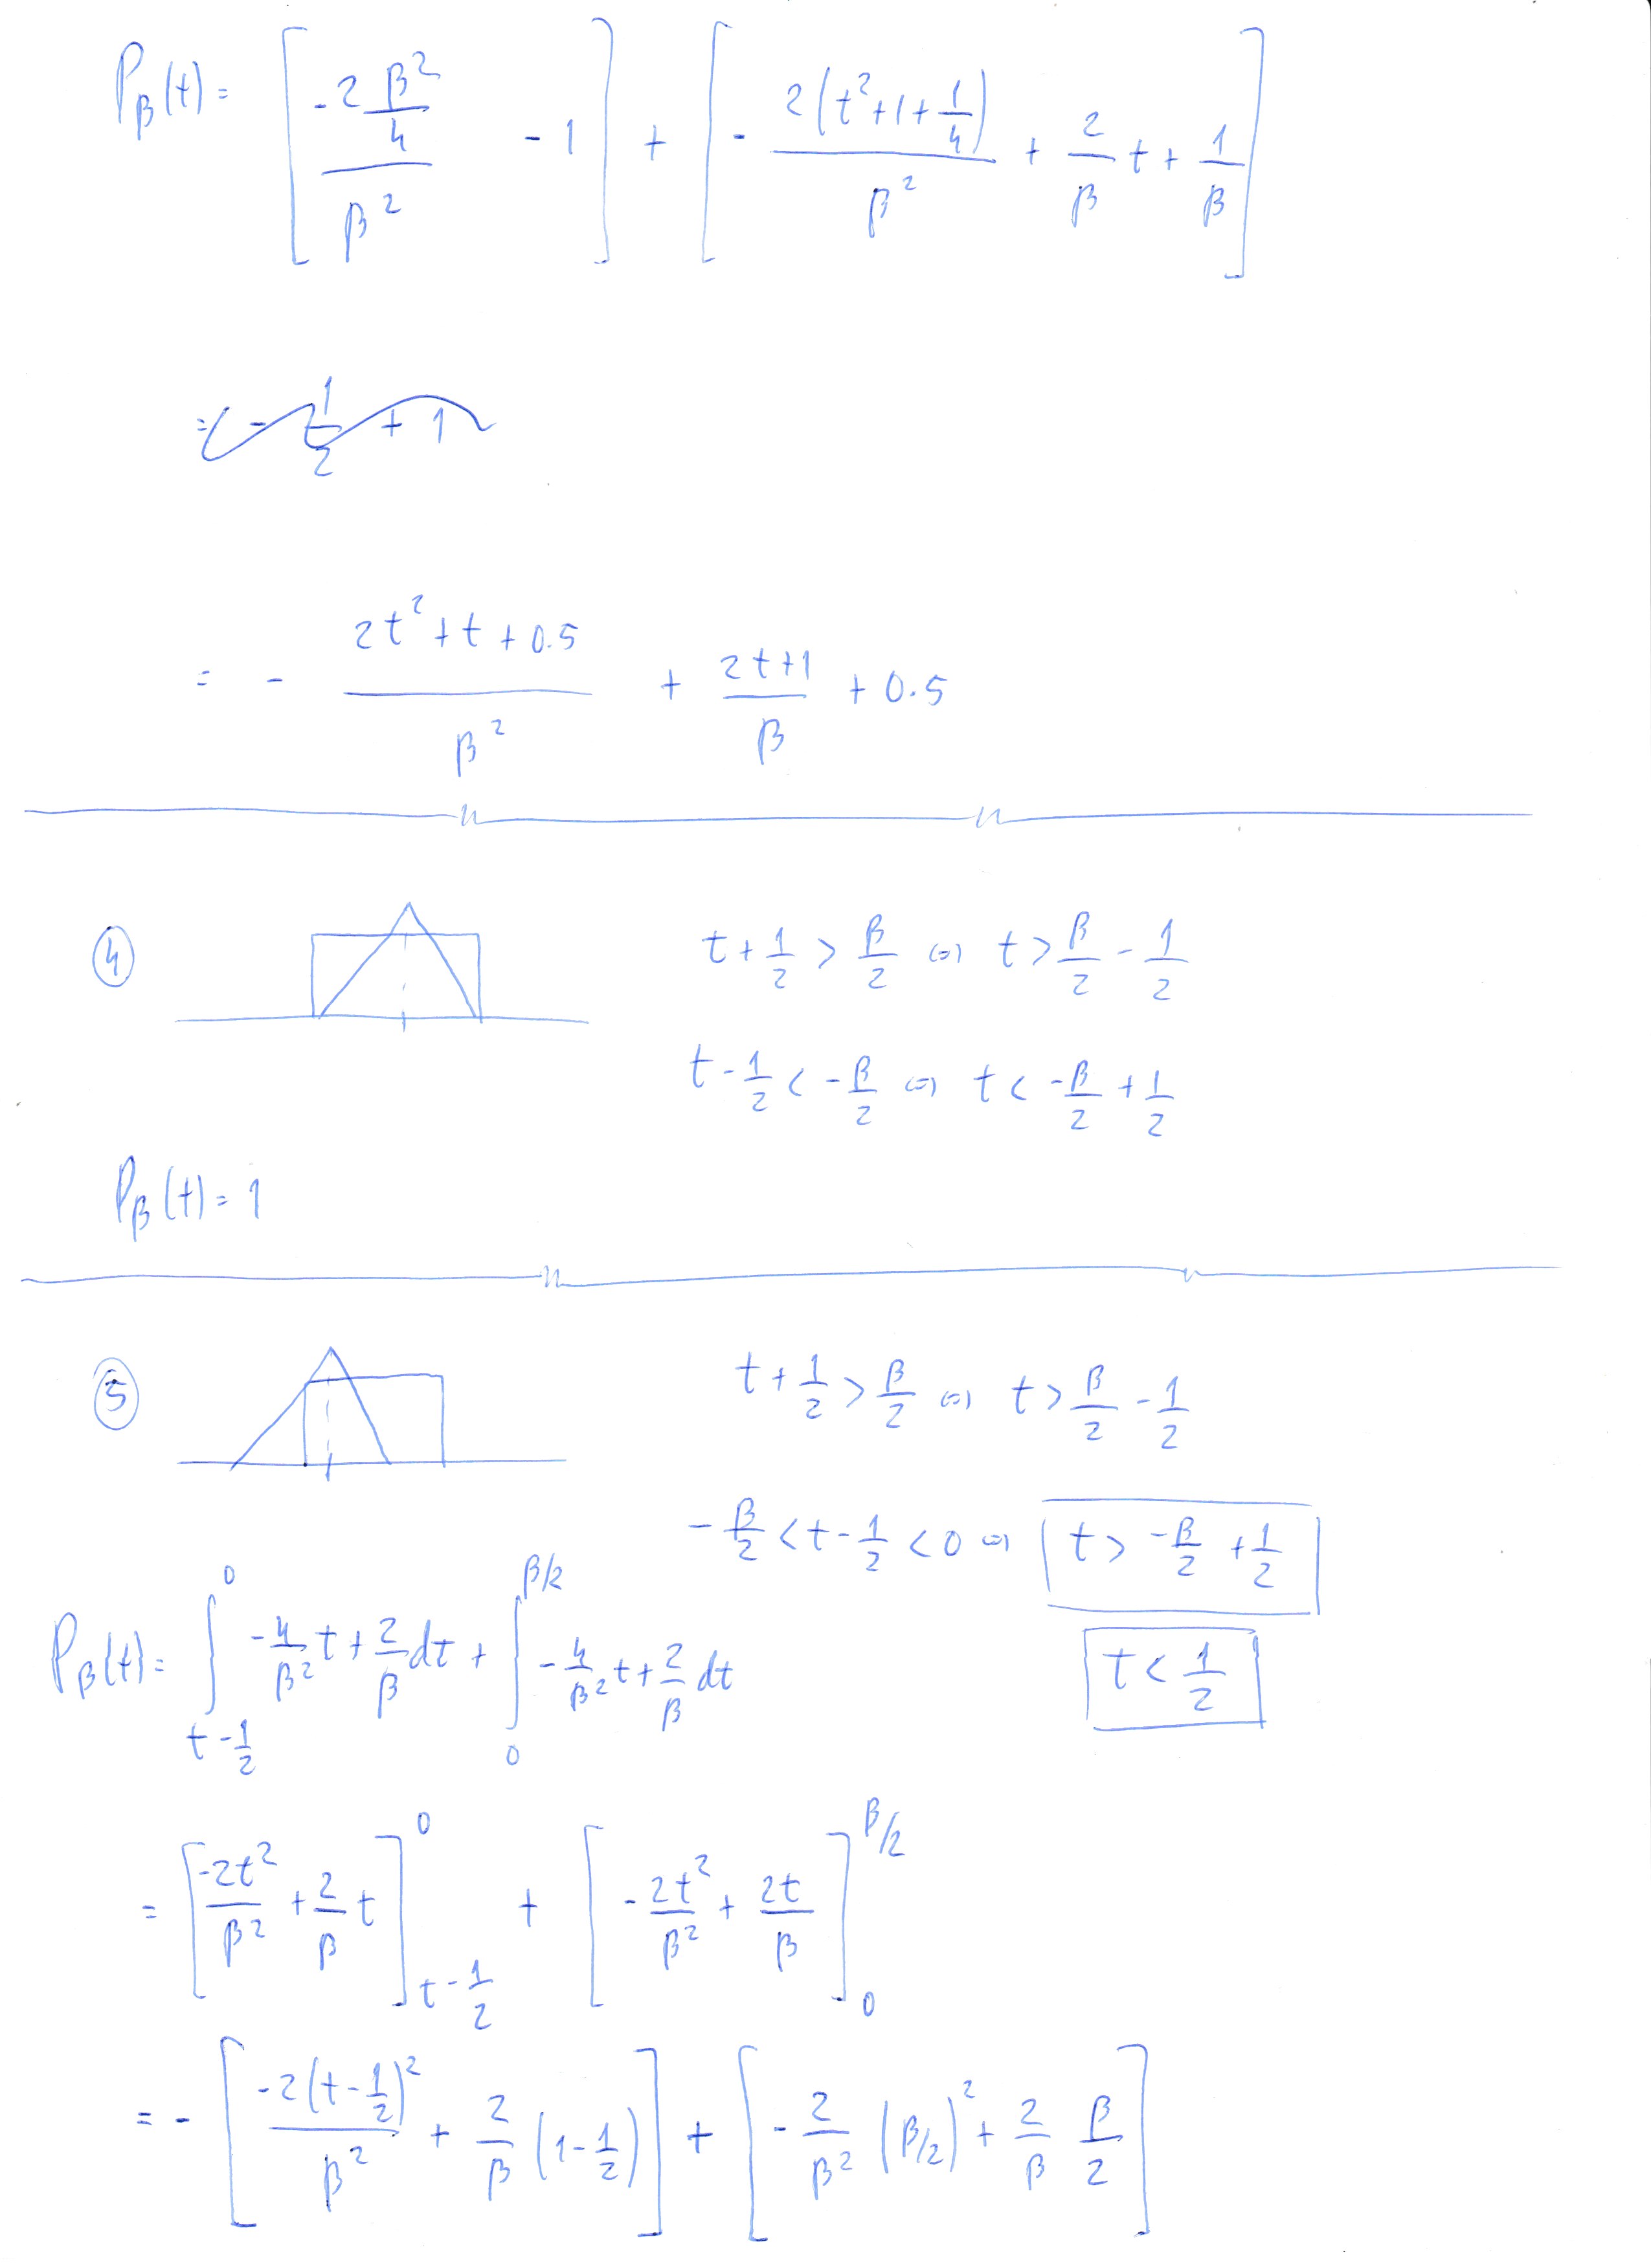 P_β(t) = [ (-2 β²/4)/β² - 1 ] + [ - 2(t²+1+1/4)/β² + 2/β t + 1/β ]
= - 1/2 + 1
= - (2t²+t+0.5)/β² + (2t+1)/β + 0.5
④ t + 1/2 > β/2 ⇔ t > β/2 - 1/2
t - 1/2 < -β/2 ⇔ t < -β/2 + 1/2
P_β(t) = 1
⑤ t + 1/2 > β/2 ⇔ t > β/2 - 1/2
-β/2 < t - 1/2 < 0 ⇔ t > -β/2 + 1/2
t < 1/2
P_β(t) = ∫_{t-1/2}^{0} -4/β² t + 2/β dt + ∫_{0}^{β/2} -4/β² t + 2/β dt
= [ -2t²/β² + 2/β t ]_{t-1/2}^{0} + [ -2t²/β² + 2t/β ]_{0}^{β/2}
= - [ -2(t-1/2)²/β² + 2/β (1-1/2) ] + [ -2/β² (β/2)² + 2/β β/2 ]